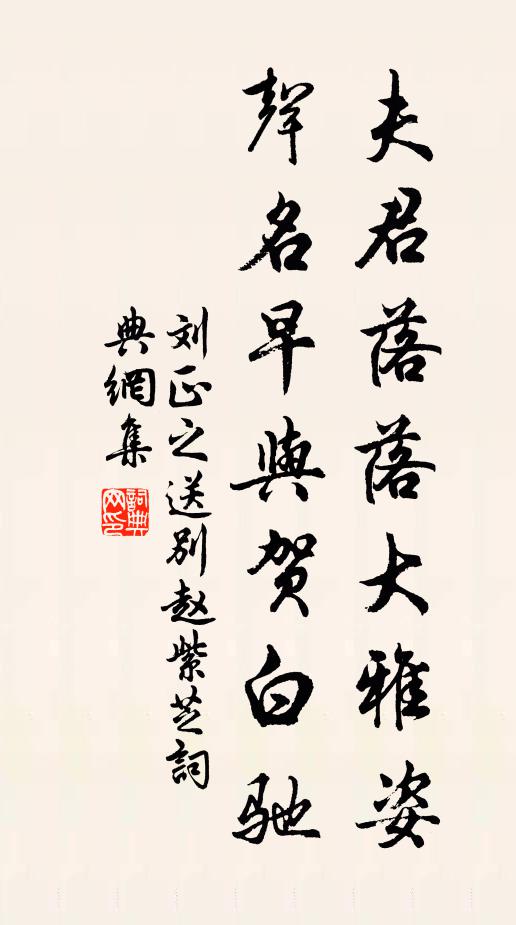 夫君落落大雅姿
聲名早與贺白驰
刘正之送别赵紫芝詞
典網集
詞典网印